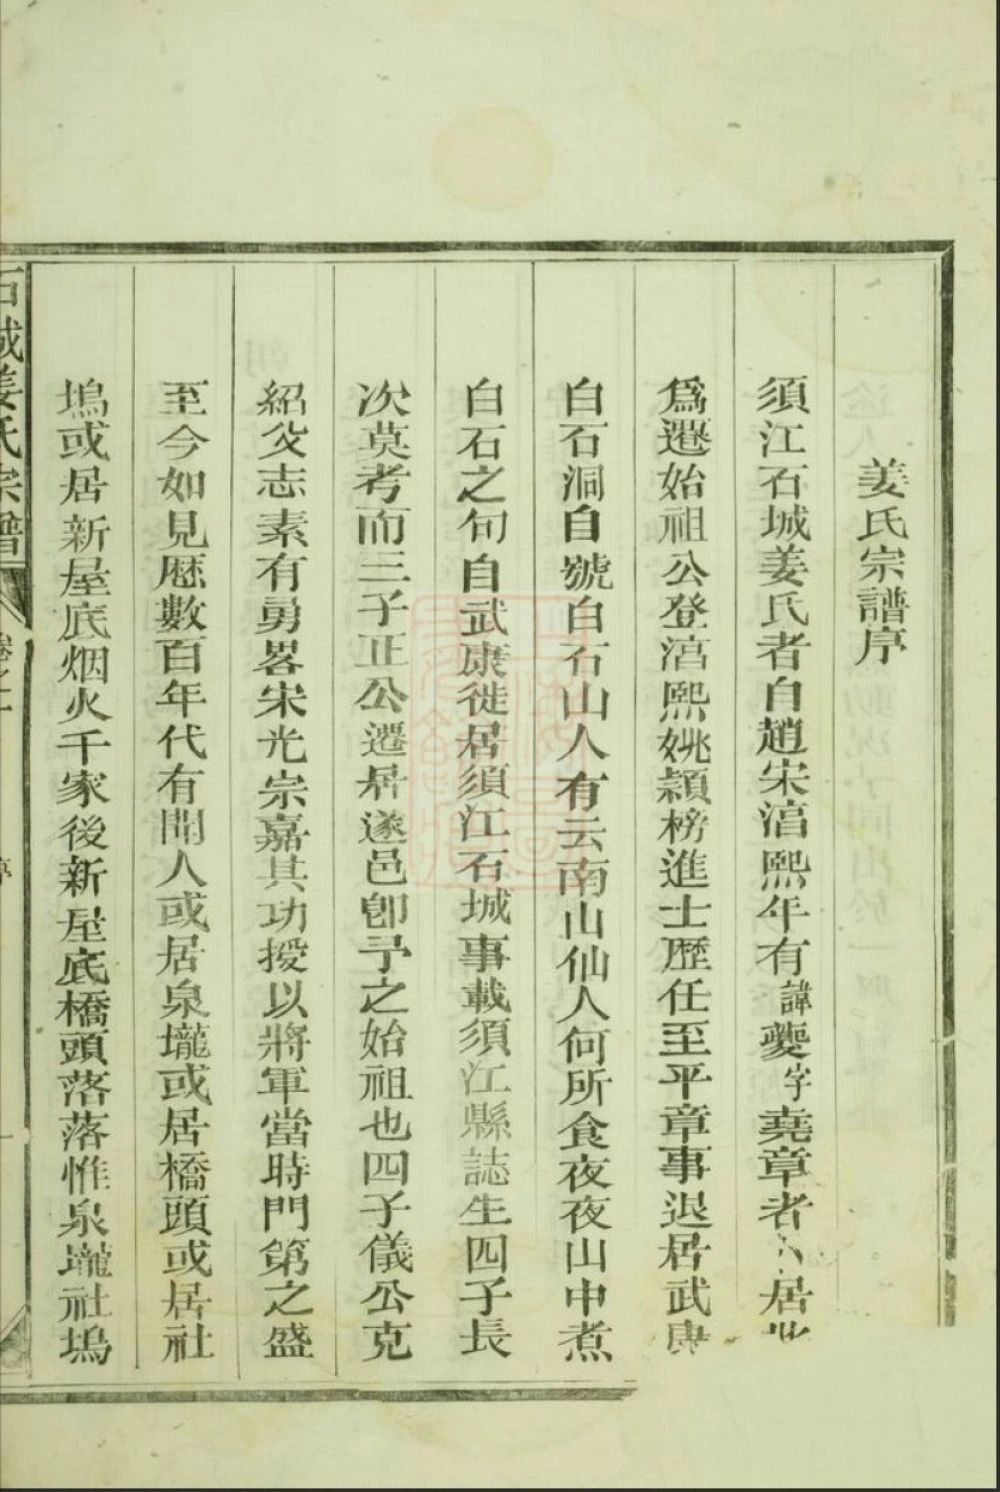 姜氏宗譜序
須江石城姜氏者自趙宋淳熙年有諱夔字堯章者居此
爲遷始祖公登淳熙姚穎榜進士歷任至平章事退居武康
白石洞自號白石山人有云南山仙人何所食夜夜山中煮
白石之句自武康徙居須江石城事載須江縣誌生四子長
次莫考而三子正公遷居遂邑卽予之始祖也四子儀公克
紹父志素有勇畧宋光宗嘉其功授以將軍當時門第之盛
至今如見歷數百年代有聞人或居泉壠或居橋頭或居社
塢或居新屋底烟火千家後新屋底橋頭落落惟泉壠社塢
石城姜氏宗譜 卷之 序 一